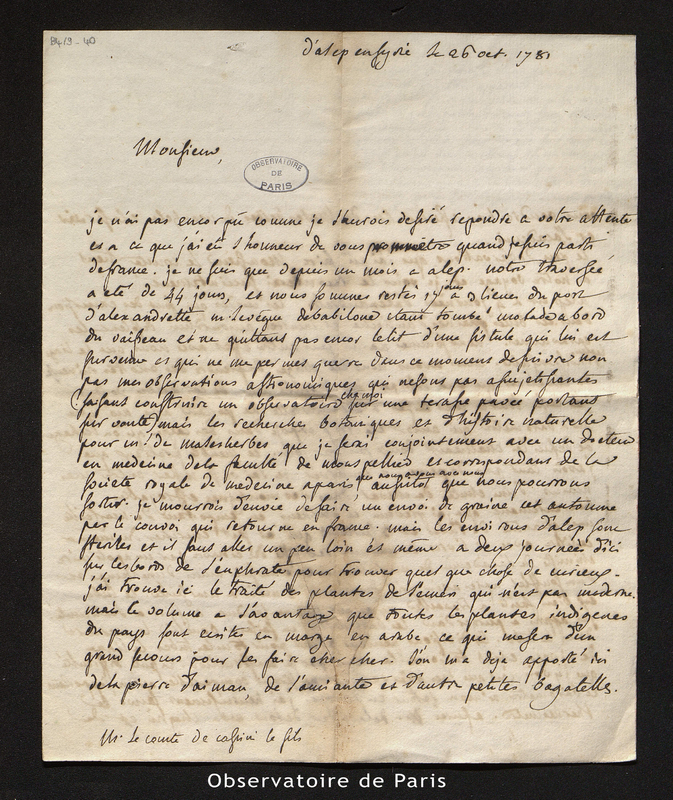 B4/9-40
d'alep en syrie le 26 oct. 1781
Monsieur,
OBSERVATOIRE
DE
PARIS
je n'ai pas encor pû comme je l'aurois desiré repondre a votre attente
et a ce que j'ai eû l'honneur de vous promettre quand je suis parti
de france. je ne suis que depuis un mois a alep. notre traversée
a eté de 44 jours, et nous sommes restés jours a 3 lieues du port
d'alexandrette m. levêque de babilone etant tombé malade a bord
du vaisseau et ne quittant pas encor le lit d'une fistule qui lui est
survenue et qui ne me permet guerre dans ce moment de suivre non
pas mes observations astronomiques qui ne sont pas assujetissantes
(faisant construire un observatoire chez moi sur une terrasse pavée portant
sur voute) mais les recherches botaniques et d'histoire naturelle
pour m. de malesherbes que je ferai conjointement avec un docteur
en medecine de la faculté de montpellier et correspondant de la
societé royale de medecine a paris que nous avons avec nous aussitot que nous pourrons
sortir. je mourrois d'envie de faire un envoi de graine cet automne
par le convoi qui retourne en france. mais les environs d'alep sont
steriles et il faut aller un peu loin et même a deux journées d'ici
sur les bords de l'euphrate pour trouver quelque chose de curieux.
j'ai trouvé ici le traité des plantes de l'emeri qui n'est pas moderne.
mais le volume a l'avantage que toutes les plantes indigenes
du pays sont ecrites en marge en arabe ce qui m'est d'un
grand secours pour les faire chercher. l'on m'a deja apporté ici
de la pierre d'aiman, de l'amiante et d'autres petites bagatelles.
Mr. le comte de cassini le fils
Observatoire de Paris